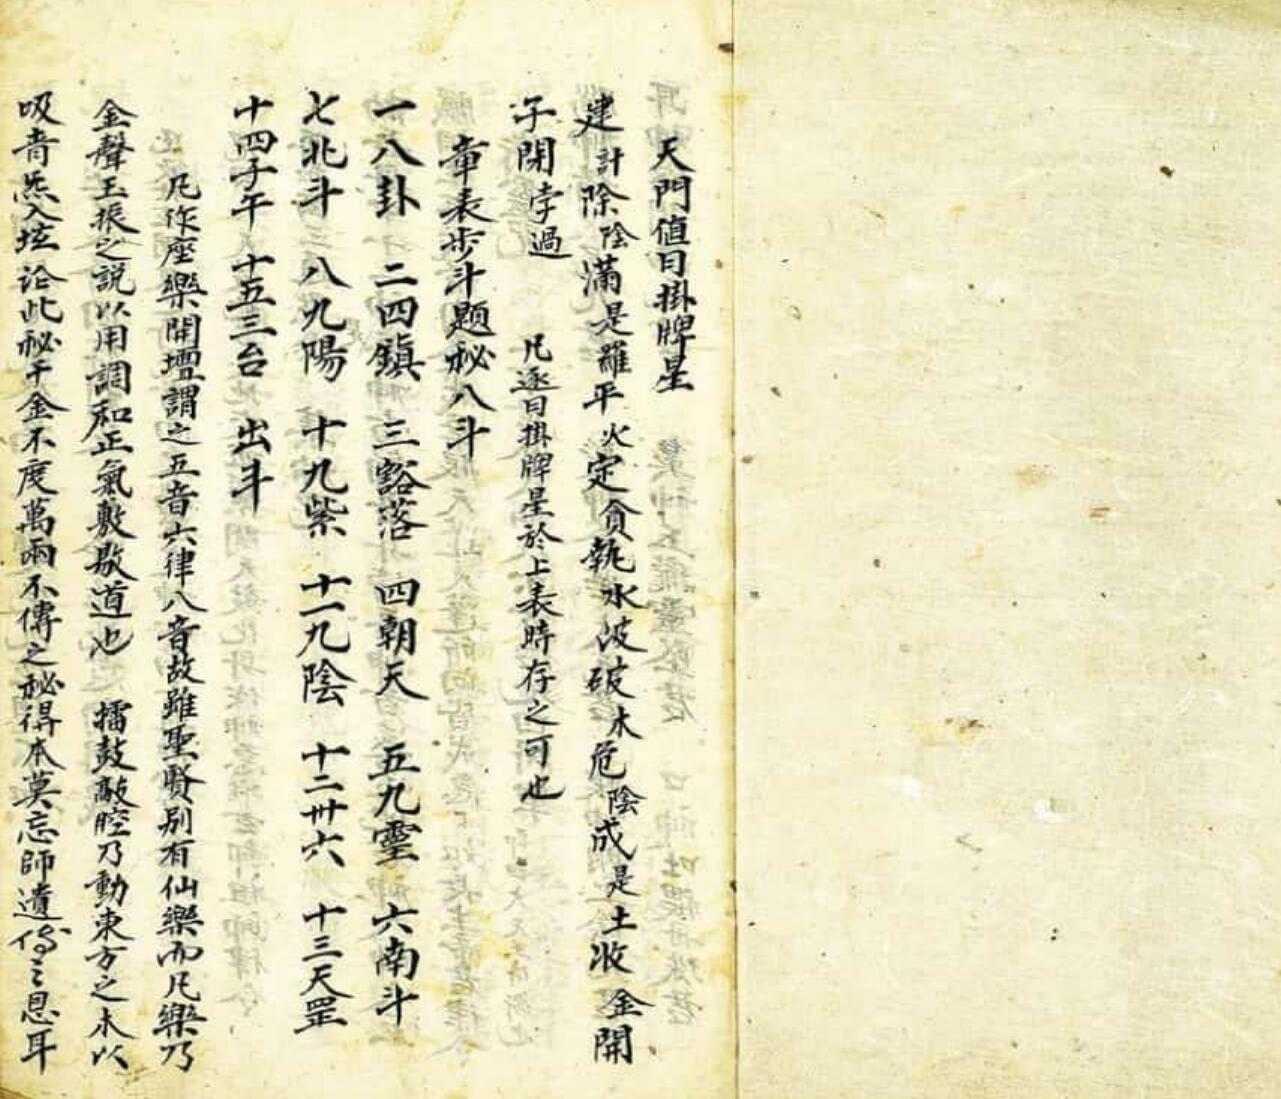 天門值日掛牌星
建計除陰滿是羅平火定貪執水波破木危陰成是土收金開
子閉孛過　凡逐日掛牌星於上表時存之可也
章表步斗題秘八斗
一八卦　二四鎮　三豁落　四朝天　五九靈　六南斗
七北斗　八九陽　十九紫　十一九陰　十二卅六　十三天罡
十四子午　十五三台　出斗
凡作座樂開壇謂之五音六律八音故雖聖賢別有仙樂而凡樂乃
金聲玉振之説以用調和正氣敷敭道也　擂鼓敲腔乃動東方之木以
吸音炁入壇論此秘千金不度萬兩不傳之秘得本莫忘師遺傳之恩耳